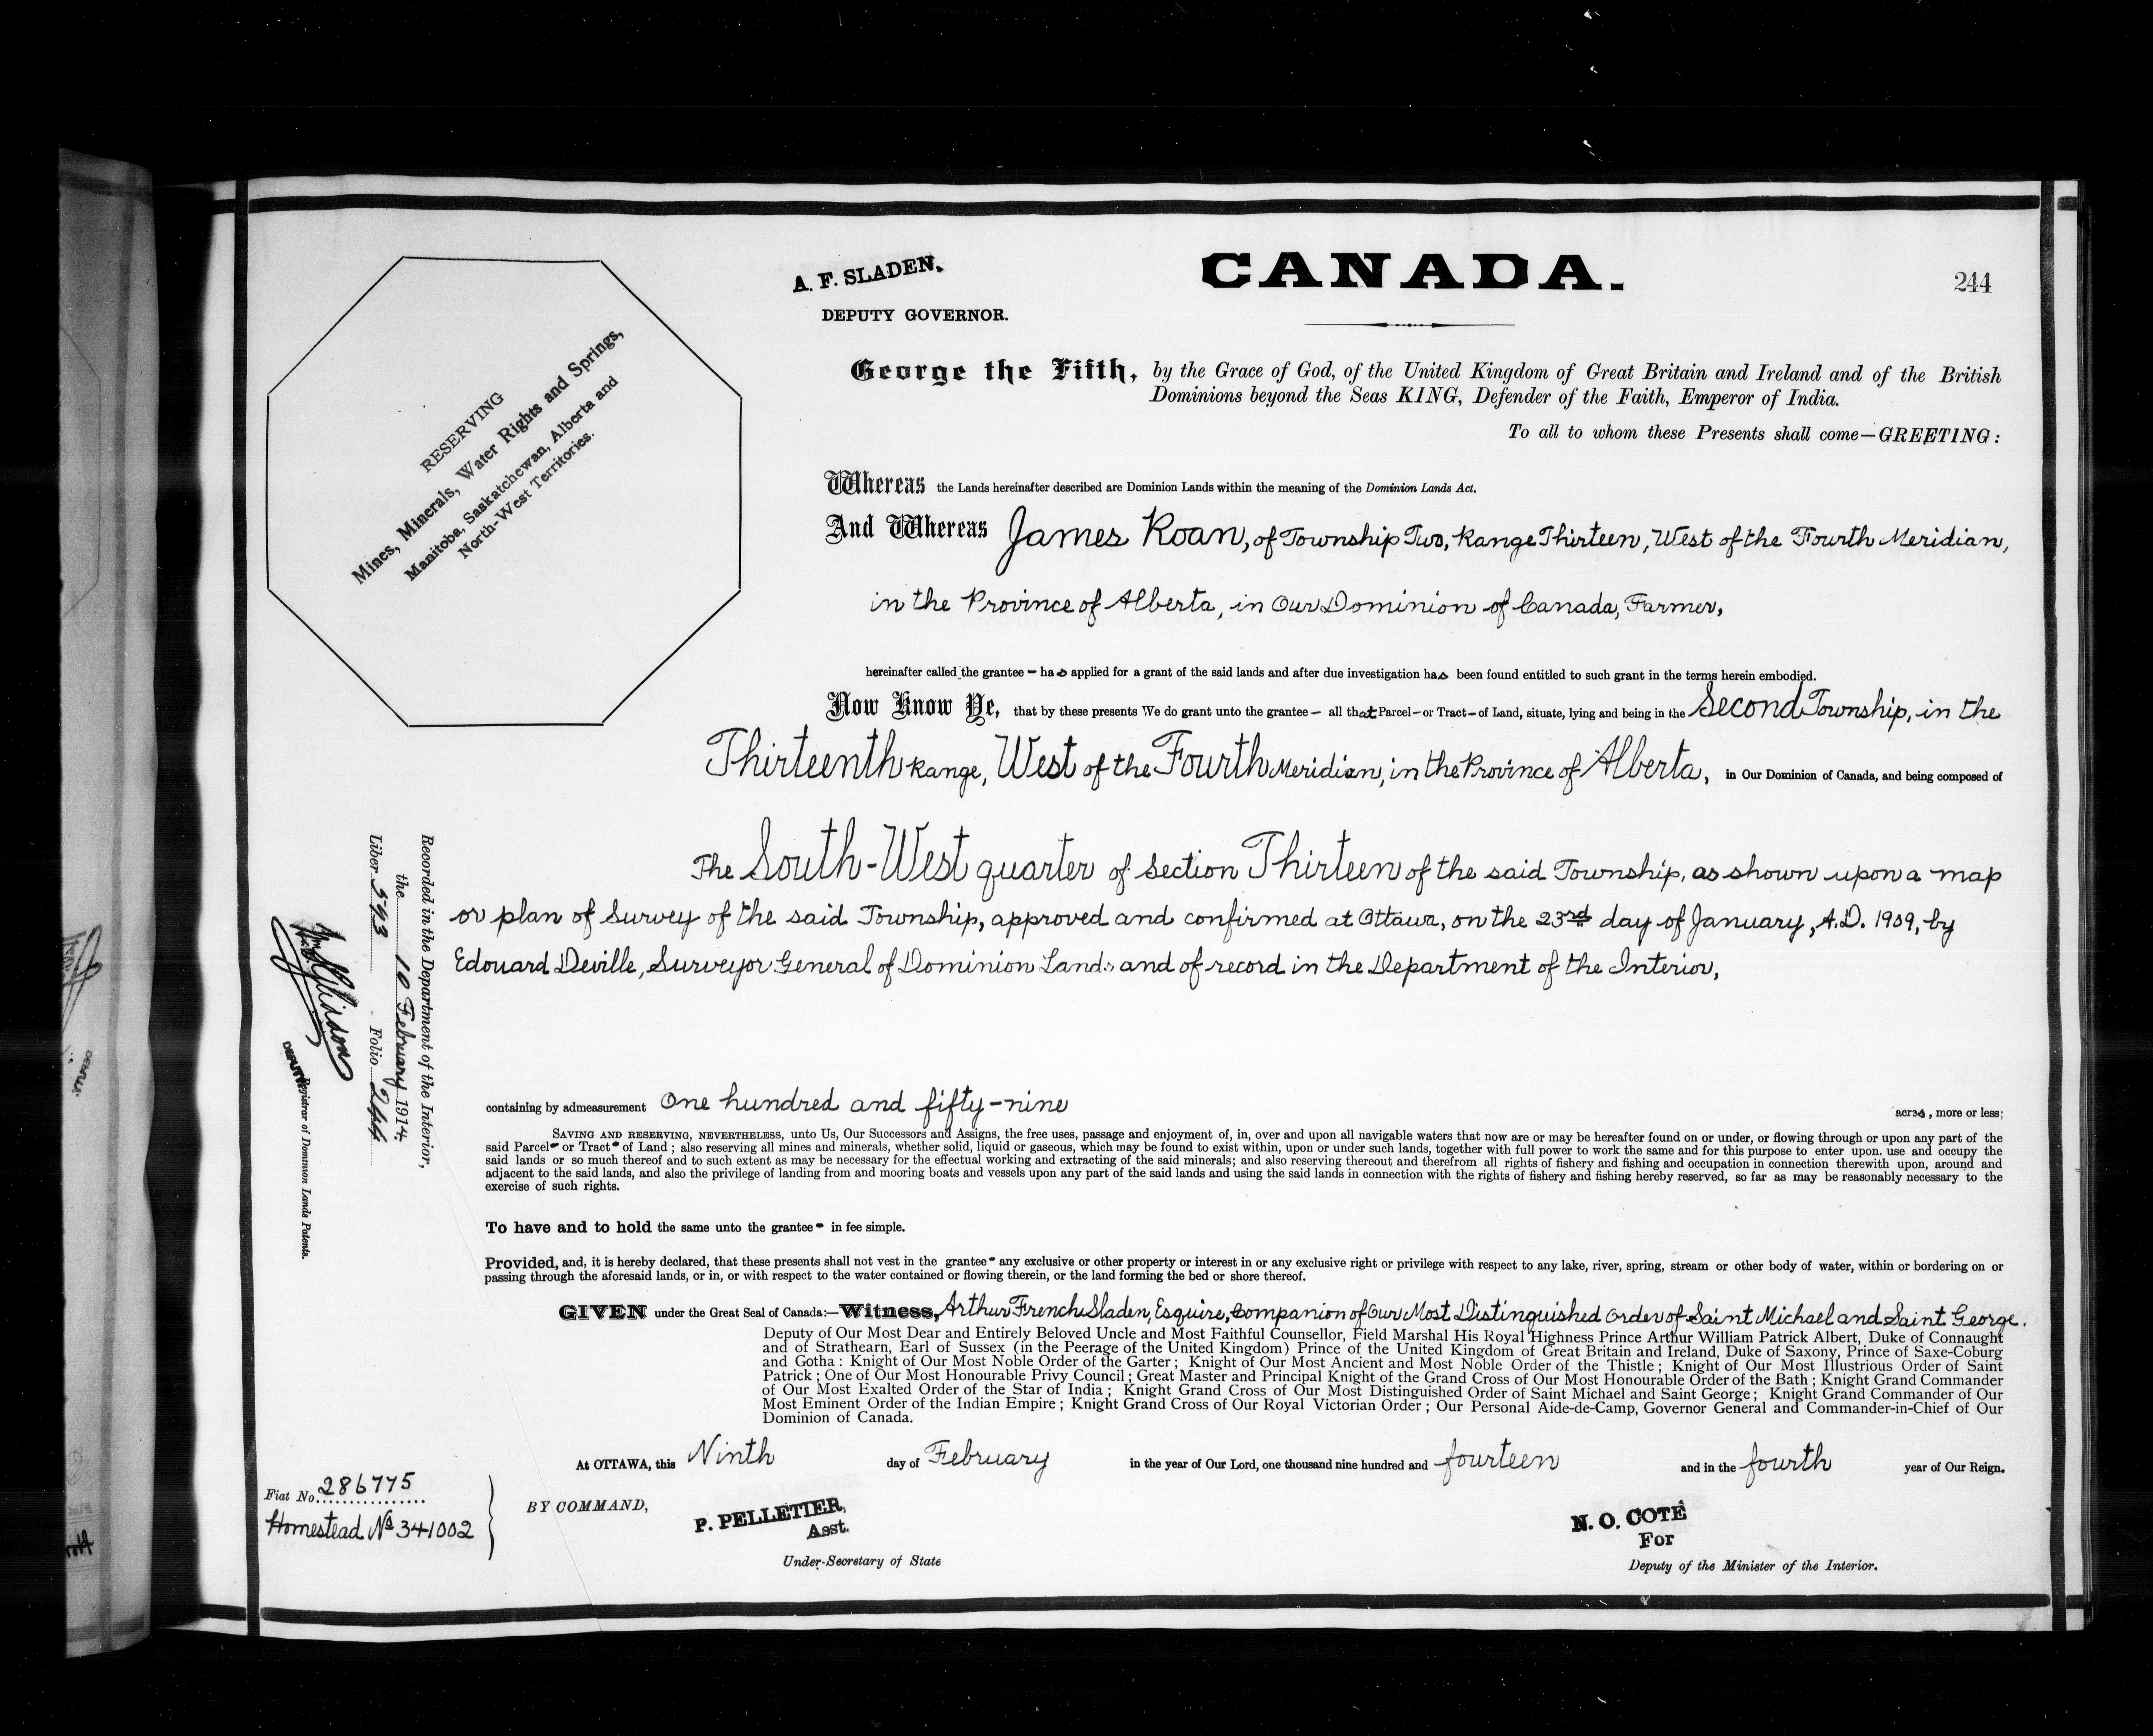 A. F. SLADEN,
DEPUTY GOVERNOR.
CANADA.
244
RESERVING
Mines, Minerals, Water Rights and Springs,
Manitoba, Saskatchewan, Alberta and
North-West Territories.
George the Fifth, by the Grace of God, of the United Kingdom of Great Britain and Ireland and of the British
Dominions beyond the Seas KING, Defender of the Faith, Emperor of India.
To all to whom these Presents shall come—GREETING:
Whereas the Lands hereinafter described are Dominion Lands within the meaning of the Dominion Lands Act.
And Whereas James Roan, of Township Two, Range Thirteen, West of the Fourth Meridian,
in the Province of Alberta, in Our Dominion of Canada, Farmer,
hereinafter called the grantee – has applied for a grant of the said lands and after due investigation has been found entitled to such grant in the terms herein embodied.
Now Know Ye, that by these presents We do grant unto the grantee – all that Parcel – or Tract – of Land, situate, lying and being in the Second Township, in the
Thirteenth Range, West of the Fourth Meridian, in the Province of Alberta, in Our Dominion of Canada, and being composed of
The South-West quarter of Section Thirteen of the said Township, as shown upon a map
or plan of Survey of the said Township, approved and confirmed at Ottawa, on the 23rd day of January, A.D. 1909, by
Edouard Deville, Surveyor General of Dominion Lands and of record in the Department of the Interior,
Recorded in the Department of the Interior,
the 10 February 1914.
Liber 593 Folio 244
DEPUTY Registrar of Dominion Lands Patents.
containing by admeasurement One hundred and fifty-nine acres, more or less;
SAVING AND RESERVING, NEVERTHELESS, unto Us, Our Successors and Assigns, the free uses, passage and enjoyment of, in, over and upon all navigable waters that now are or may be hereafter found on or under, or flowing through or upon any part of the
said Parcel – or Tract – of Land; also reserving all mines and minerals, whether solid, liquid or gaseous, which may be found to exist within, upon or under such lands, together with full power to work the same and for this purpose to enter upon, use and occupy the
said lands or so much thereof and to such extent as may be necessary for the effectual working and extracting of the said minerals; and also reserving thereout and therefrom all rights of fishery and fishing and occupation in connection therewith upon, around and
adjacent to the said lands, and also the privilege of landing from and mooring boats and vessels upon any part of the said lands and using the said lands in connection with the rights of fishery and fishing hereby reserved, so far as may be reasonably necessary to the
exercise of such rights.
To have and to hold the same unto the grantee – in fee simple.
Provided, and, it is hereby declared, that these presents shall not vest in the grantee – any exclusive or other property or interest in or any exclusive right or privilege with respect to any lake, river, spring, stream or other body of water, within or bordering on or
passing through the aforesaid lands, or in, or with respect to the water contained or flowing therein, or the land forming the bed or shore thereof.
GIVEN under the Great Seal of Canada:—Witness, Arthur French Sladen, Esquire, Companion of Our Most Distinguished Order of Saint Michael and Saint George.
Deputy of Our Most Dear and Entirely Beloved Uncle and Most Faithful Counsellor, Field Marshal His Royal Highness Prince Arthur William Patrick Albert, Duke of Connaught
and of Strathearn, Earl of Sussex (in the Peerage of the United Kingdom) Prince of the United Kingdom of Great Britain and Ireland, Duke of Saxony, Prince of Saxe-Coburg
and Gotha: Knight of Our Most Noble Order of the Garter; Knight of Our Most Ancient and Most Noble Order of the Thistle; Knight of Our Most Illustrious Order of Saint
Patrick; One of Our Most Honourable Privy Council; Great Master and Principal Knight of the Grand Cross of Our Most Honourable Order of the Bath; Knight Grand Commander
of Our Most Exalted Order of the Star of India; Knight Grand Cross of Our Most Distinguished Order of Saint Michael and Saint George; Knight Grand Commander of Our
Most Eminent Order of the Indian Empire; Knight Grand Cross of Our Royal Victorian Order; Our Personal Aide-de-Camp, Governor General and Commander-in-Chief of Our
Dominion of Canada.
At OTTAWA, this Ninth day of February in the year of Our Lord, one thousand nine hundred and fourteen and in the fourth year of Our Reign.
Fiat No. 286775
Homestead No 341002
BY COMMAND,
P. PELLETIER,
Asst.
Under-Secretary of State
N. O. COTÉ
For
Deputy of the Minister of the Interior.